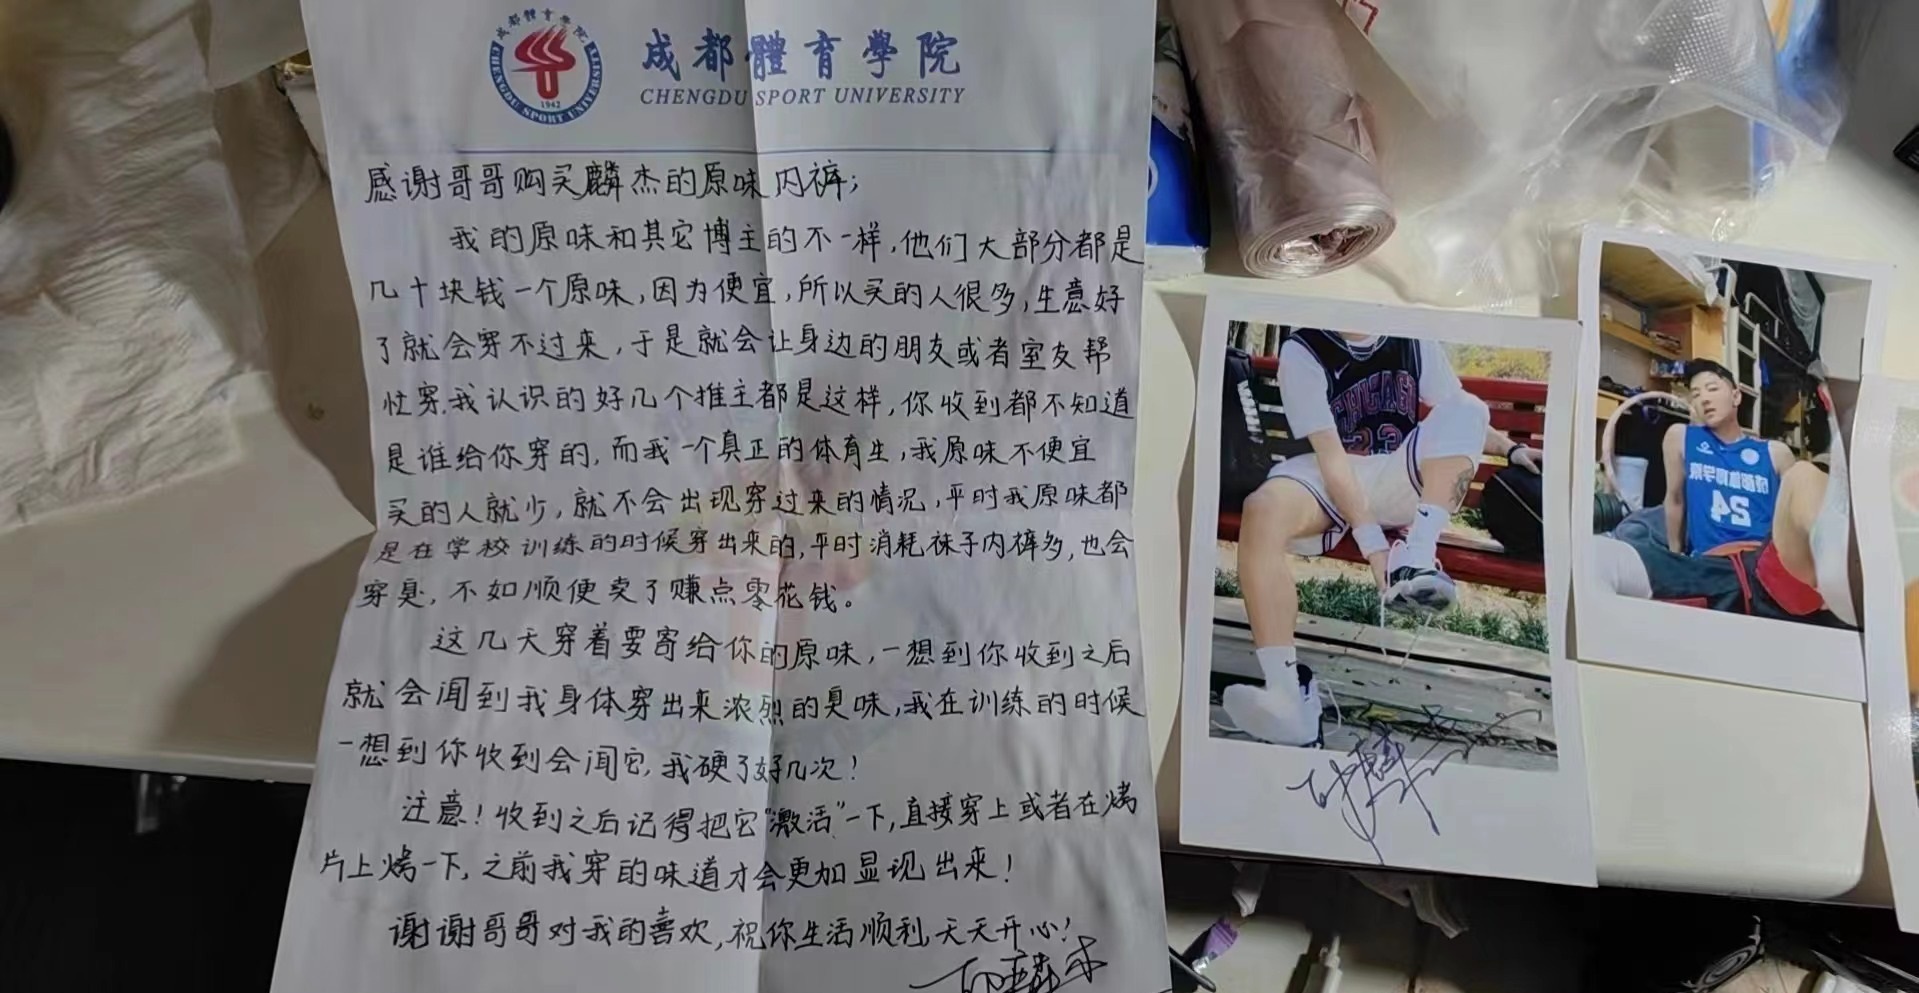 成都體育學院
CHENGDU SPORT UNIVERSITY
成都體育學院
CHENGDU SPORT UNIVERSITY
1942
感谢哥哥购买麟杰的原味内裤;
我的原味和其它博主的不一样,他们大部分都是
几十块钱一个原味,因为便宜,所以买的人很多,生意好
了就会穿不过来,于是就会让身边的朋友或者室友帮
忙穿,我认识的好几个推主都是这样,你收到都不知道
是谁给你穿的,而我一个真正的体育生,我原味不便宜
买的人就少,就不会出现穿过来的情况,平时我原味都
是在学校训练的时候穿出来的,平时消耗袜子内裤多,也会
穿臭,不如顺便卖了赚点零花钱。
这几天穿着要寄给你的原味,一想到你收到之后
就会闻到我身体穿出来浓烈的臭味,我在训练的时候
一想到你收到会闻它,我硬了好几次!
注意!收到之后记得把它“激活”一下,直接穿上或者在烤
片上烤一下,之前我穿的味道才会更加显现出来!
谢谢哥哥对我的喜欢,祝你生活顺利,天天开心!
CHICAGO
23
成都体育学院
24